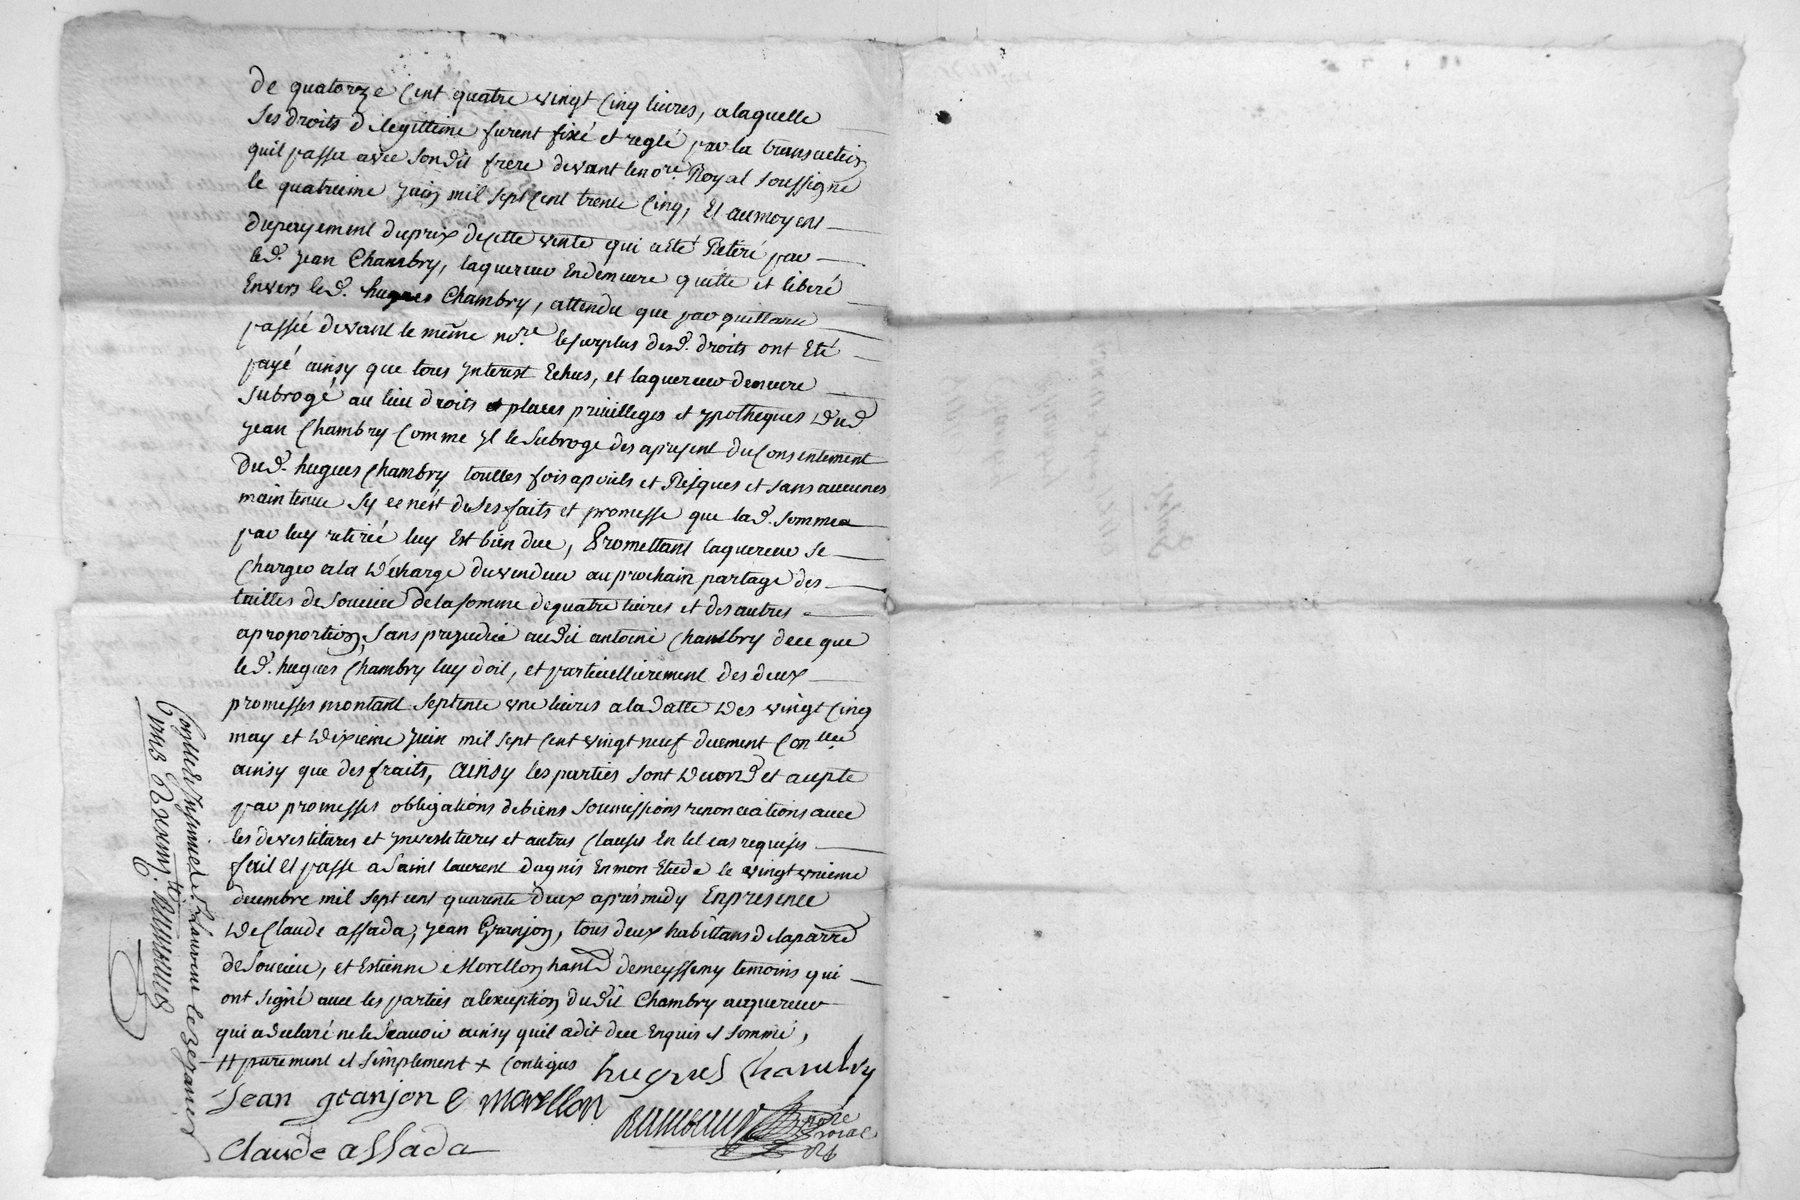 de quatorze Cent quatre vingt Cinq livres, alaquelle
ses droits de legitteme furent fixé et reglé par la transaction
quil passa avec son dit frere devant le no.re Royal soussigné
le quatrieme juin mil sept Cent trente Cinq, Et aumoyens
dupayement duprix decette vente qui a eté Reteré par
le d. jean Chambry, laquereur En demeure quitte et liberé
Envers le d. hugues Chambry, attendu que par quittance
passée devant le même no.re le surplus des d. droits ont Eté
payé ainsy que tous jnterest Echus, et laquereur demeure
subrogé au lieu droits et places privilleges et ypotheques dud
jean Chambry Comme jl le subroge des apresent du Consentement
dud. hugues Chambry touttes fois aperils et Risques et sans aucunes
maintenue sy ce n'est de ses faits et promesse que lad. somme
par luy retirée luy Est bien due, Promettant laquereur se
Charger ala décharge duvendeur auprochain partage des
tailles de Soucieu delasomme dequatre livres et des autres
aproportion, sans prejudice audit antoine Chambry dece que
le d. hugues Chambry luy doit, et particullierement des deux
promesses montant septente une livres aladatte des vingt Cinq
may et dixieme juin mil sept Cent vingt neuf duement Con.llee
ainsy que des fraits, ainsy les parties sont dacord et acepte
par promesses obligations debiens soumissions renonciations avec
les devestitures et jnvestitures et autres Clauses En tel cas requises
fait et passé a Saint laurent dagnis En mon Etude le vingt unieme
decembre mil sept cent quarente deux aprés midy Enpresence
de Claude assada, jean Granjon, tous deux habittans delaparr.e
de Soucieu, et Estienne Morellon hant demeyssemy temoins qui
ont signé avec les parties alexception dudit Chambry acquereur
qui adeclaré ne le Scavoir ainsy quil adit dece Enquis et sommé,
H purement et simplement + Contigus hugues Chambry
Jean granjon E morellon
no.re Royal
Claude assada